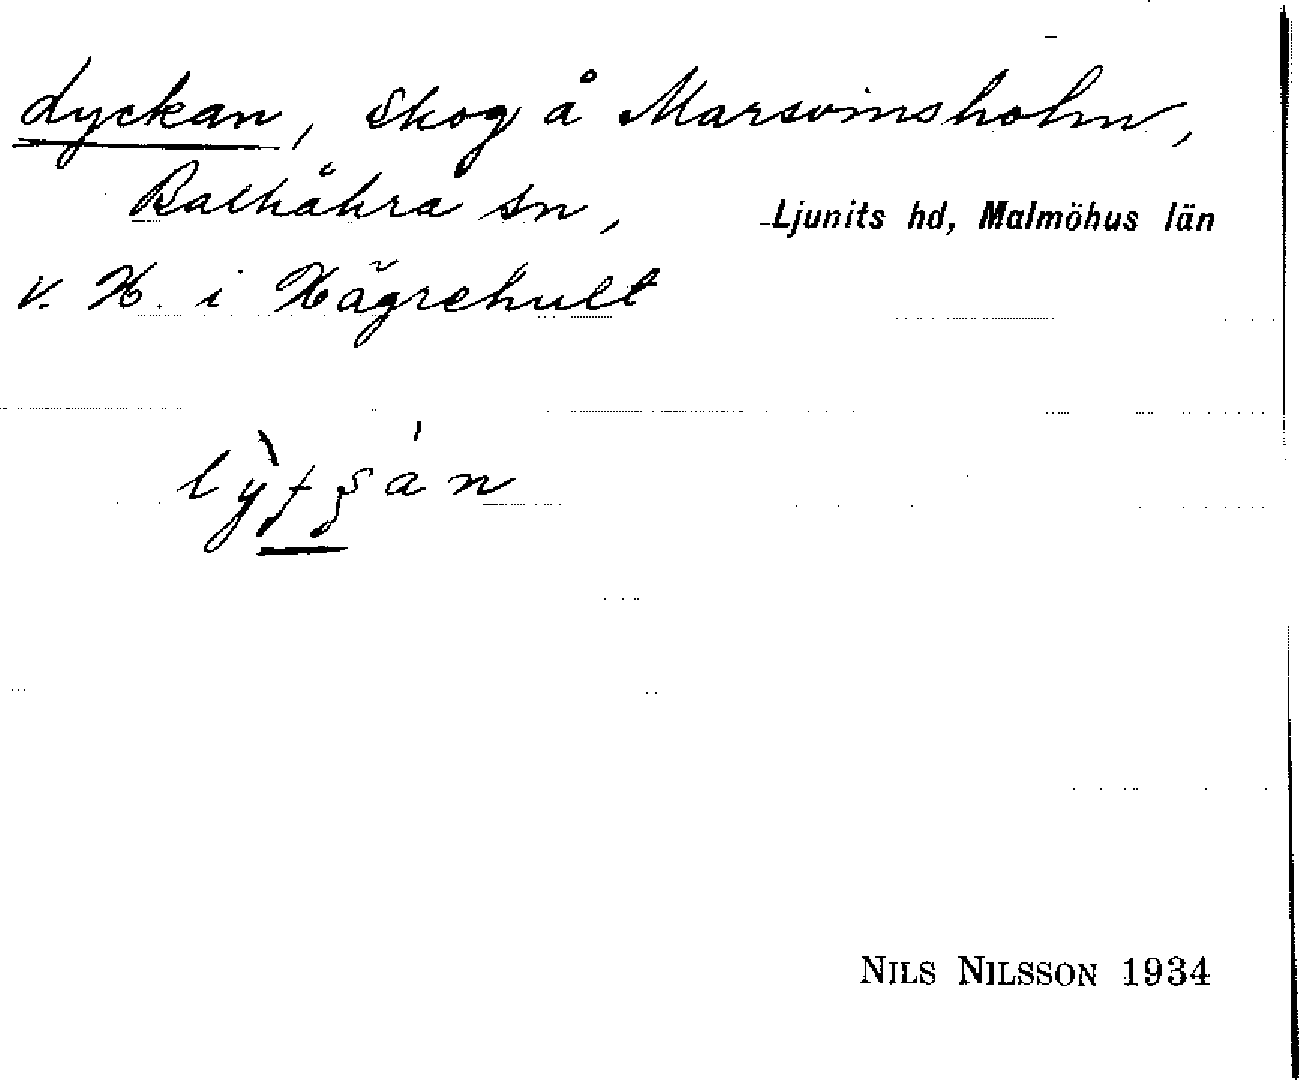 Lyckan, Skog å Marsvinsholm,
Balkåkra sn, Ljunits hd, Malmöhus län
V. N. i Hägrehult
NILS NILSSON 1934